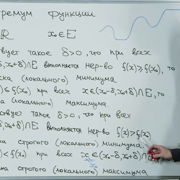 ремум функции
x₀∈E
вует такое δ>0, что при всех
δ, x₀+δ)∩E выполняется нер-во f(x)≥f(x₀), то
ка (локального) минимума
)≤f(x₀) при всех x∈(x₀-δ, x₀+δ)∩E, то
локального) максимума
твует такое δ>0, что при всех
)∩E выполняется нер-во f(x)>f(x₀)
строгого (локального) минимума
)<f(x₀) при всех x∈(x₀-δ, x₀+δ)∩
ка строгого (локального) максимума